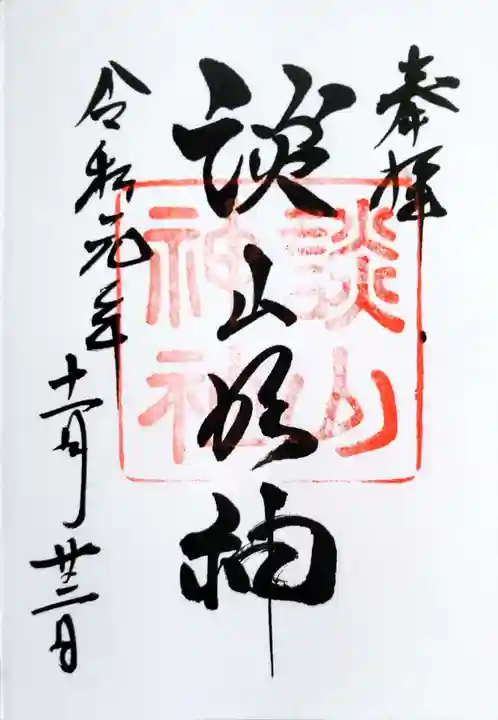 奉拝
談山明神
談山
神社
令和元年
十一月廿三日